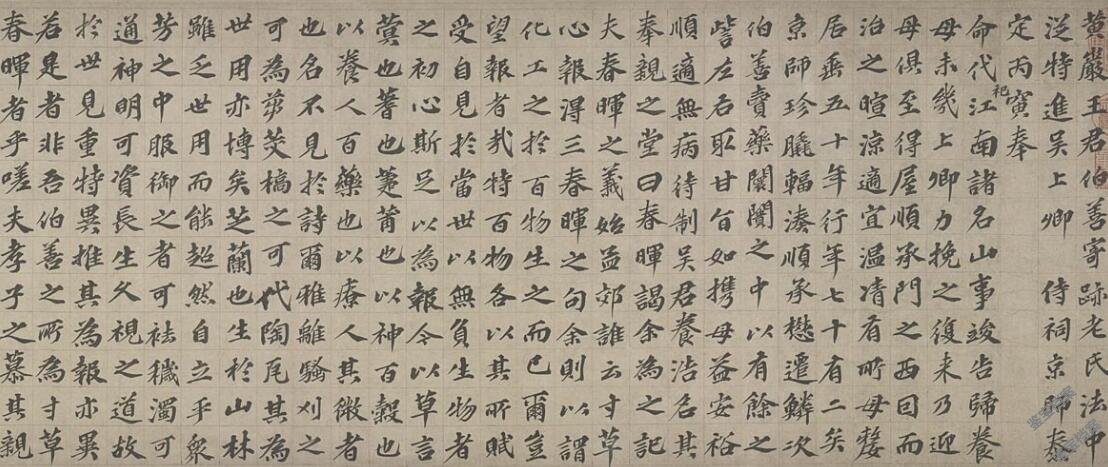 黄巖王君伯善寄跡老氏法中
從特進吴上卿 侍祠京師泰
定丙寅奉
命代祀江南諸名山事竣告歸養
母未幾上卿力挽之復来乃迎
母俱至得屋順承門之西囘而
治之暄涼適宜温凊有所母嫠
居垂五十年行年七十有二矣
京師珍輻湊順承懋遷鱗次
伯善賣藥闤闠之中以有餘之
訾左右取甘旨如携母益安裕
順適無病待制吴君養浩名其
奉親之堂曰春暉謁余為之記
夫春暉之義始孟郊誰云寸草
心報得三春暉之句余則以謂
化工之於百物生之而已爾豈
望報者哉特百物各以其所賦
受自見於當世以無負生物者
之初心斯足以為報今以草言
蓂也蓍也萐莆也以神百穀也
以養人百藥也以療人其微者
也名不見於詩爾雅離騷刈之
可為芻茭槁之可代陶瓦其為
世用亦博矣芝蘭也生於山林
雖乏世用而能超然自立乎衆
芳之中服御之者可袪穢濁可
通神明可資長生久視之道故
於世見重特異推其為報亦異
若是者非吾伯善之所為寸草
春暉者乎嗟夫孝子之慕其親